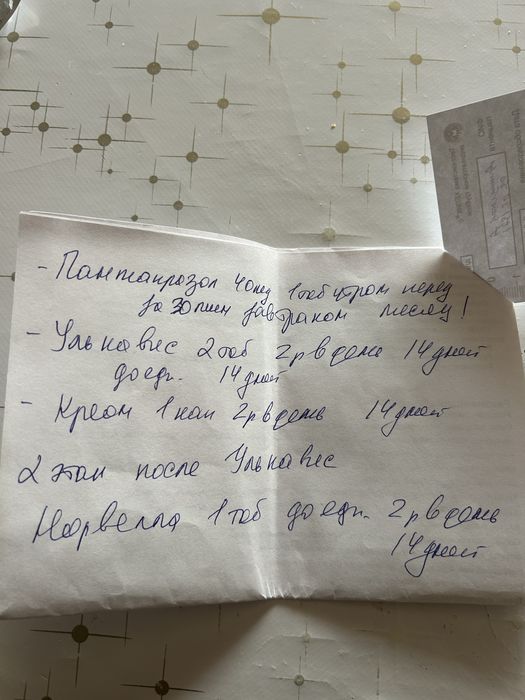 - Пантапразол 40мг 1таб утром перед
за 30 мин завтраком месяц!
- Улькавис 2 таб 2р в день 14 дней
до еды. 14 дней
- Креон 1 кап 2р в день 14 дней
2 этап после Улькавис
Норвелла 1 таб до еды. 2р в день
14 дней